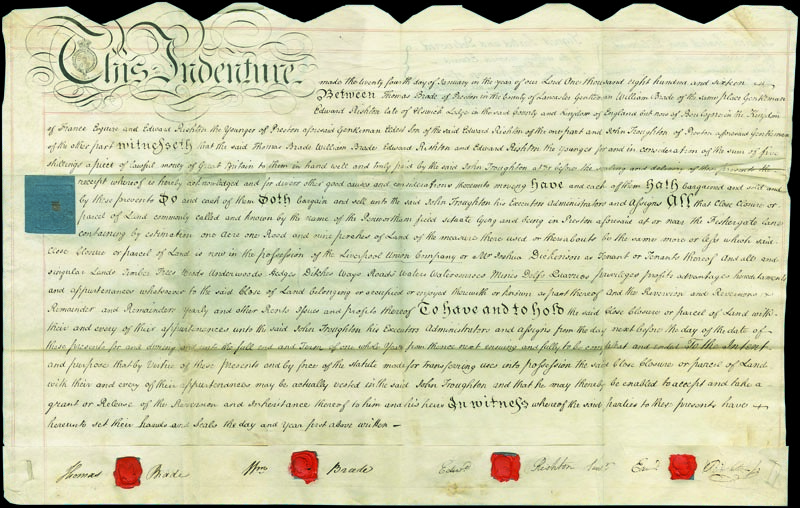 This Indenture
made the twenty fourth day of January in the year of our Lord One thousand eight hundred and sixteen
Between Thomas Brade of Preston in the County of Lancaster Gentleman William Brade of the same place Gentleman
Edward Rishton late of Lodge in the said County and Kingdom of England but now of Boulogne in the Kingdom
of France Esquire and Edward Rishton the Younger of Preston aforesaid Gentleman Eldest Son of the said Edward Rishton of the one part and John Troughton of Preston aforesaid Gentleman
of the other part witnesseth that the said Thomas Brade William Brade Edward Rishton and Edward Rishton the younger for and in consideration of the sum of five
shillings a piece of lawful money of Great Britain to them in hand well and truly paid by the said John Troughton at or before the sealing and delivery of these presents the
receipt whereof is hereby acknowledged and for divers other good causes and considerations thereunto moving have and each of them Hath bargained and sold and
by these presents Do and each of them Doth bargain and sell unto the said John Troughton his Executors Administrators and Assigns All that Close Closure or
parcel of Land commonly called and known by the name of the Penwortham field situate lying and being in Preston aforesaid at or near the Fishergate Lane
containing by estimation one Acre one Rood and nine perches of Land of the measure there used or thereabouts be the same more or less which said
Close Closure or parcel of Land is now in the possession of the Liverpool Union Company or Mr Joshua Dickerson as Tenant or Tenants thereof And all and
singular Lands Timber Trees Woods Underwoods Hedges Ditches Ways Roads Waters Watercourses Mines Delfs Quarries privileges profits advantages hereditaments
and appurtenances whatsoever to the said Close of Land belonging or occupied or enjoyed therewith or known as part thereof And the Reversion and Reversions
Remainder and Remainders Yearly and other Rents Issues and profits thereof To have and to hold the said Close Closure or parcel of Land with
their and every of their appurtenances unto the said John Troughton his Executors Administrators and Assigns from the day next before the day of the date of
these presents for and during and unto the full end and Term of one whole Year from thence next ensuing and fully to be compleat and ended To the Intent
and purpose that by Virtue of these presents and by force of the statute made for transferring uses into possession the said Close Closure or parcel of Land
with their and every of their appurtenances may be actually vested in the said John Troughton and that he may thereby be enabled to accept and take a
grant or Release of the Reversion and Inheritance thereof to him and his heirs In witness whereof the said parties to these presents have
hereunto set their hands and Seals the day and Year first above written
Thomas Brade Wm Brade Edwd Rishton Edwd